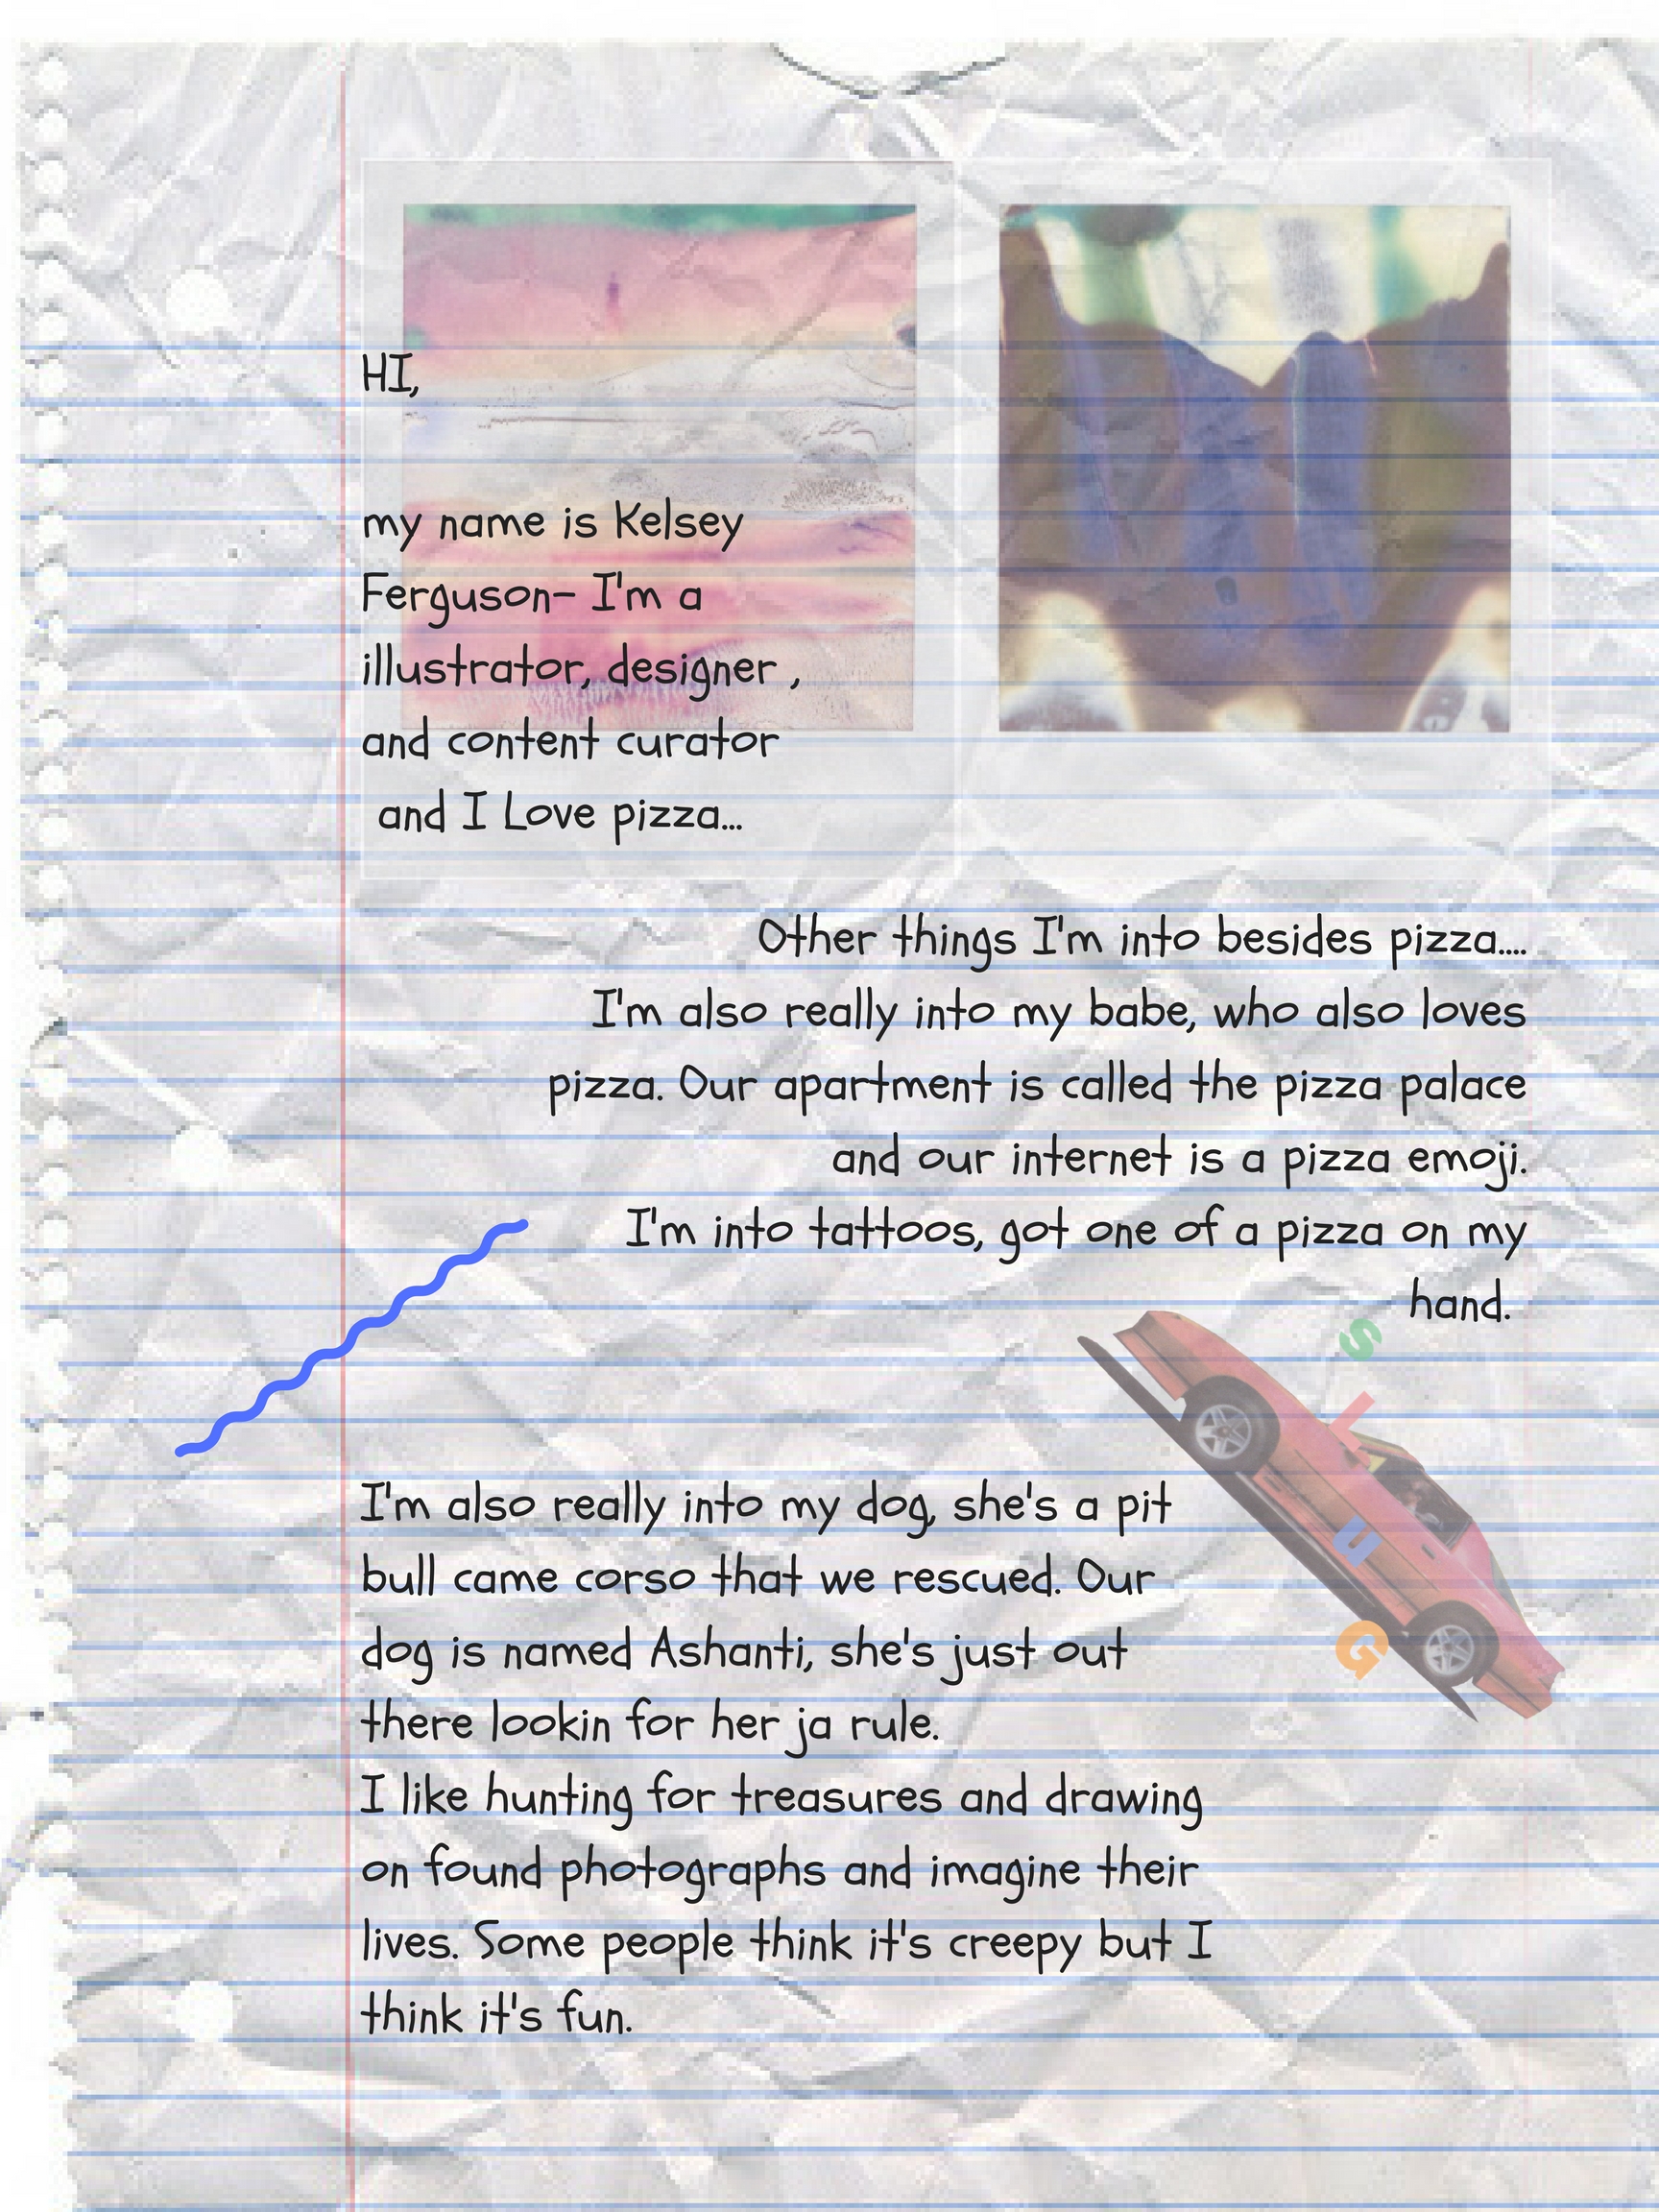 HI,
my name is Kelsey
Ferguson- I'm a
illustrator, designer ,
and content curator
and I Love pizza...
Other things I'm into besides pizza....
I'm also really into my babe, who also loves
pizza. Our apartment is called the pizza palace
and our internet is a pizza emoji.
I'm into tattoos, got one of a pizza on my
hand.
S
L
U
G
I'm also really into my dog, she's a pit
bull came corso that we rescued. Our
dog is named Ashanti, she's just out
there lookin for her ja rule.
I like hunting for treasures and drawing
on found photographs and imagine their
lives. Some people think it's creepy but I
think it's fun.